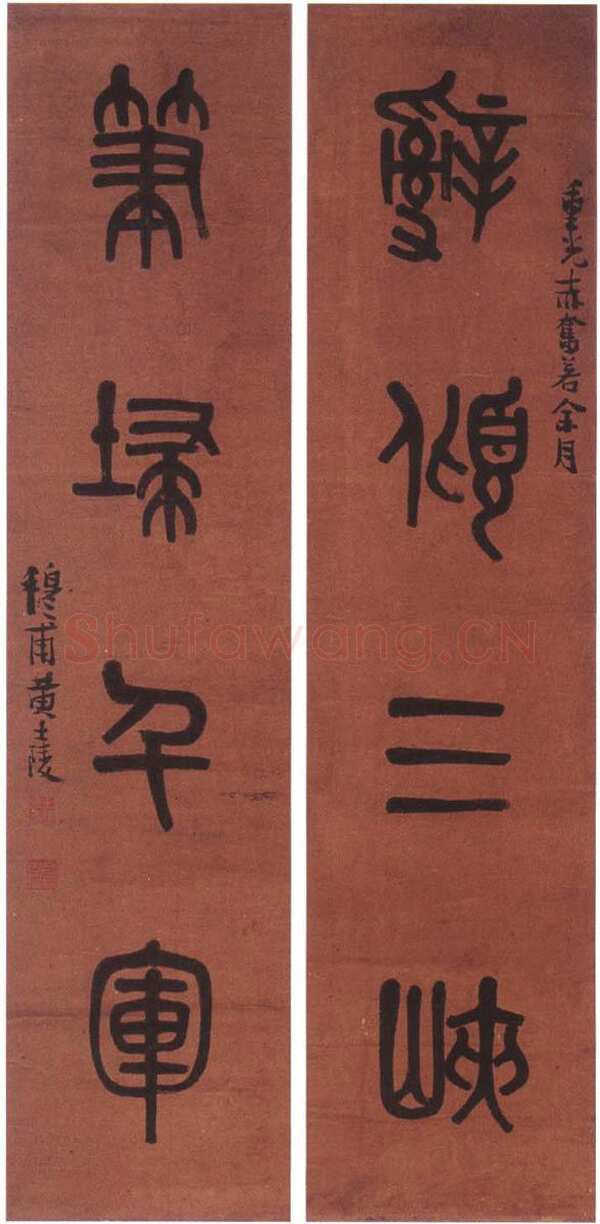 重光赤奮若余月
辭傾三峽
筆埽千軍
穆甫黃士陵
Shufawang.CN